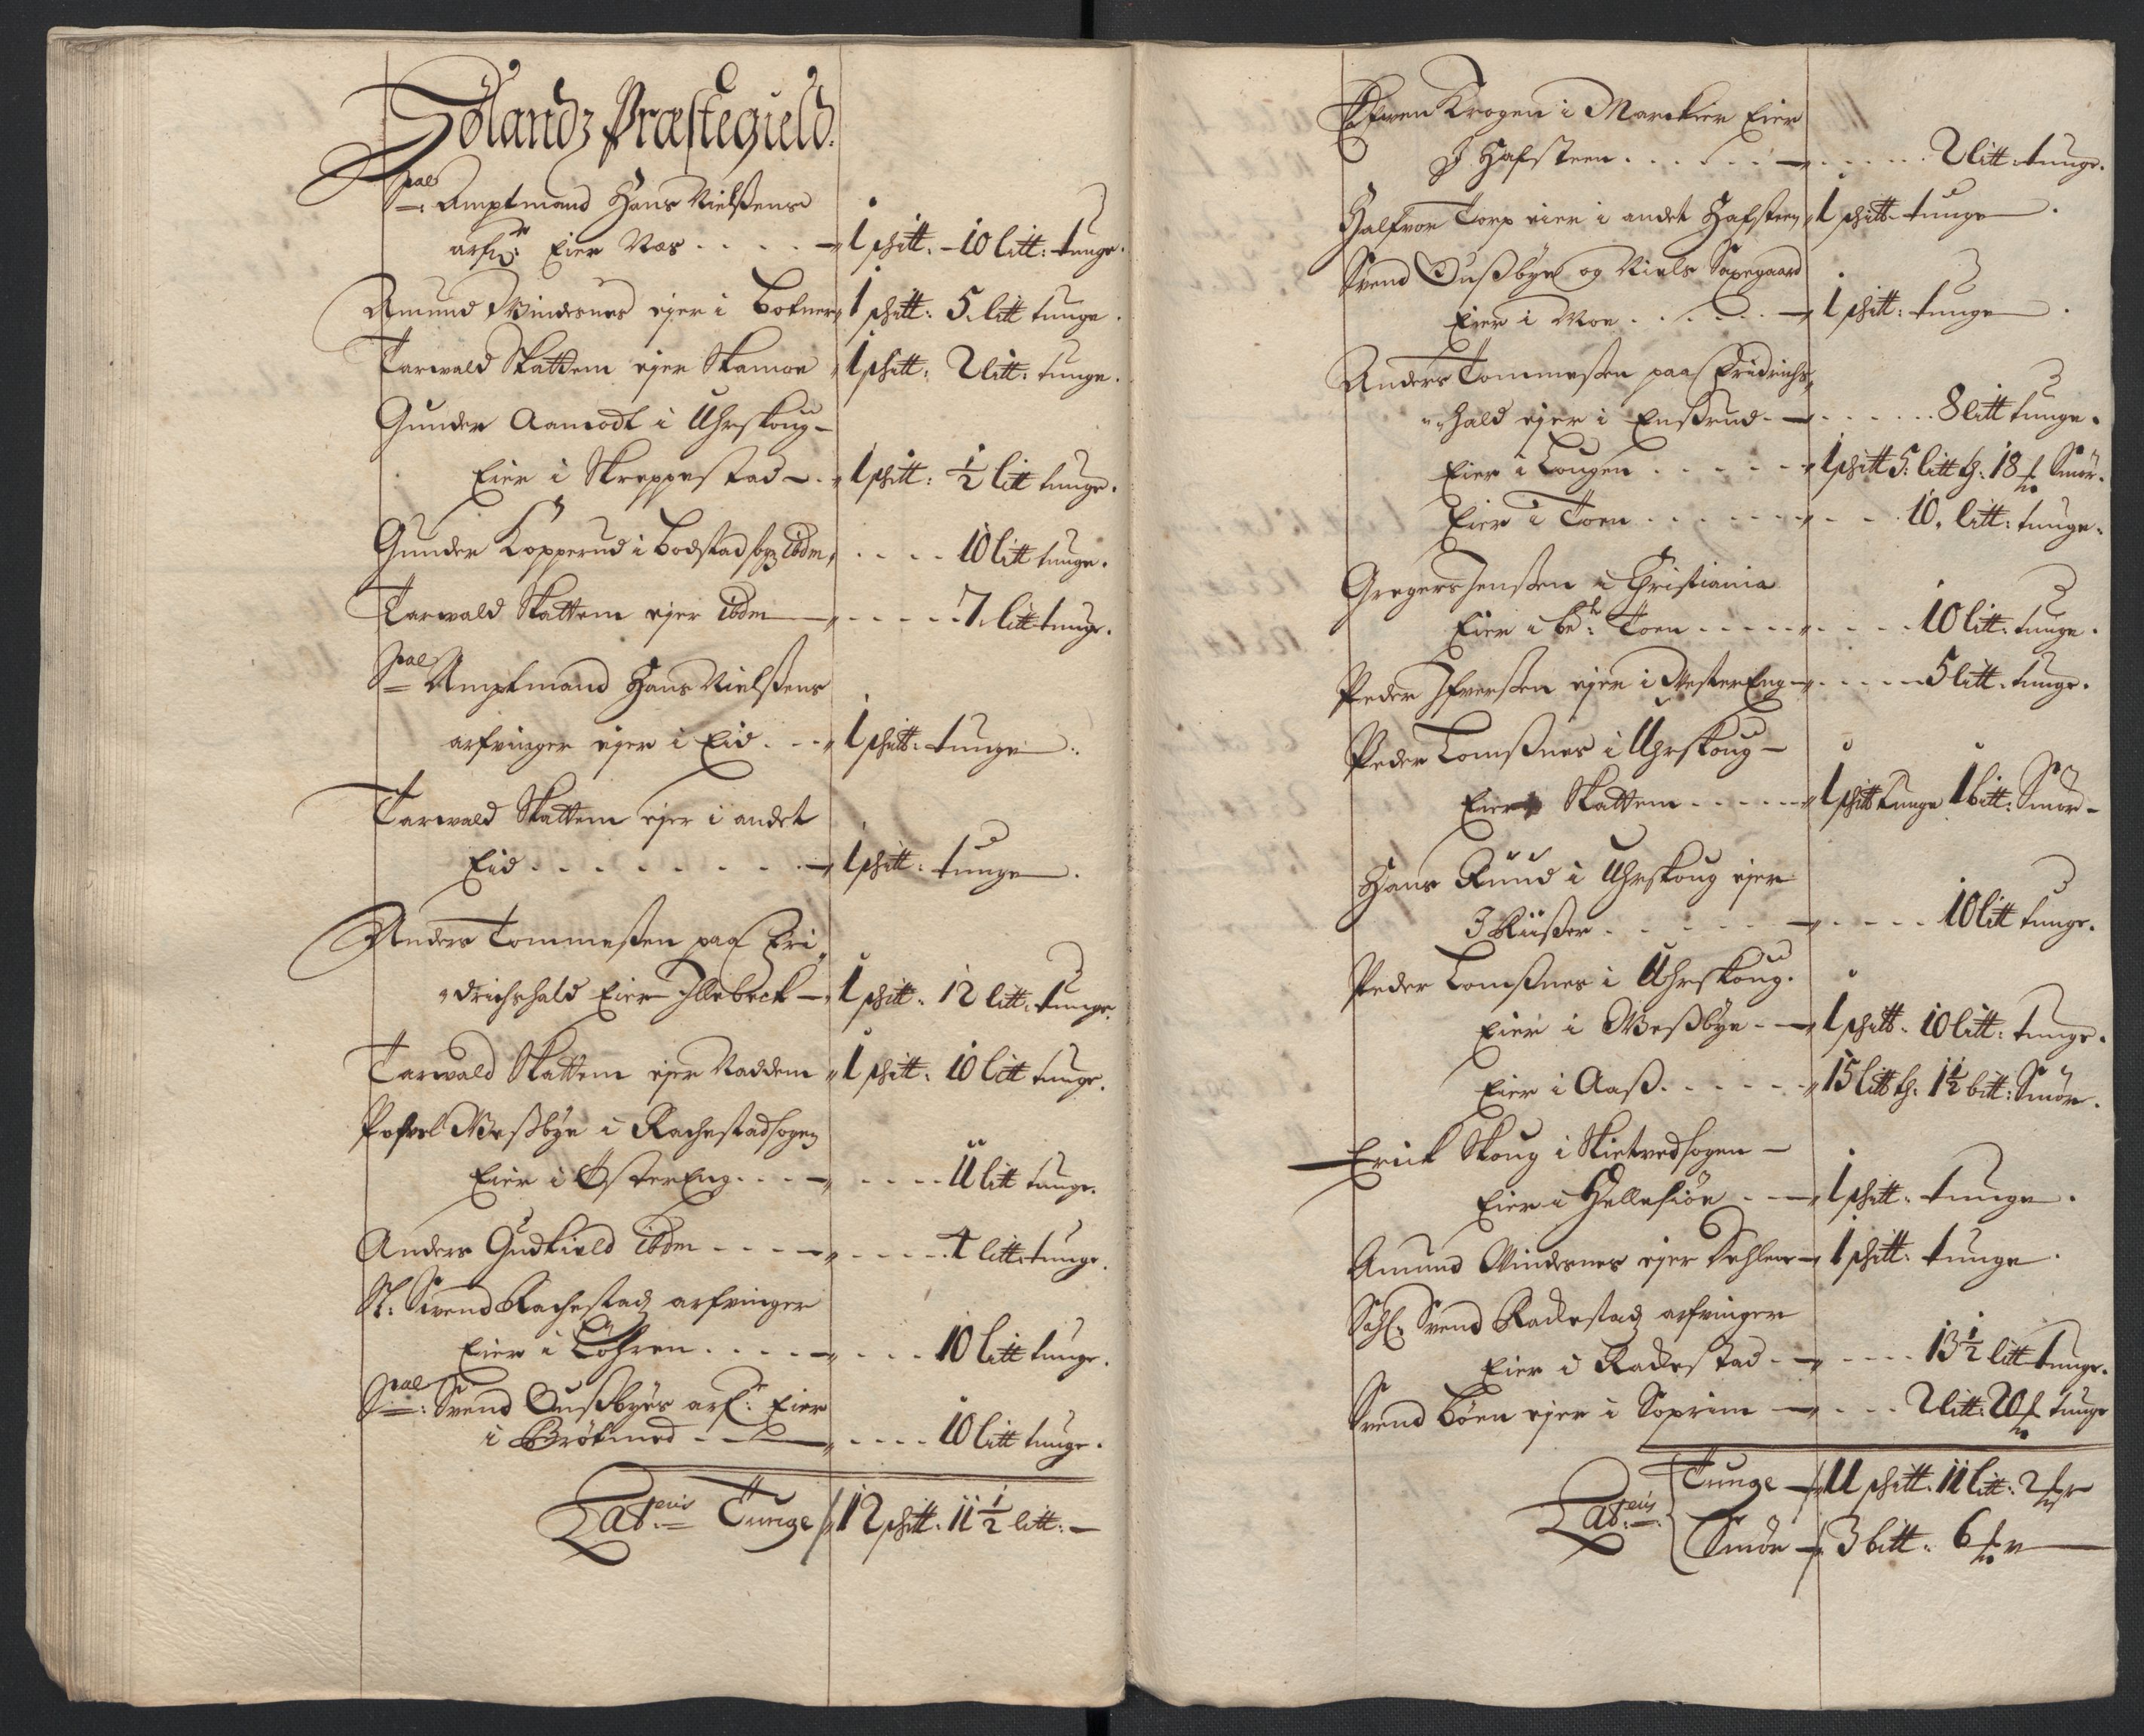 Hølandz Præstegield.
Sal: Amptmand Hans Nielßens
arf: Eier Næs . . . . 1 schitt: - 10 litt: tunge.
Amund Windsnes ejer i Botner 1 schitt: 5. litt tunge.
Tarvald Skattem ejer Skamoe 1 schitt: 2 litt: tunge.
Gunder Aamodt i Uhrskoug -
Eier i Skreppestad - . 1 schitt: ½ litt tunge.
Gunder Kopperud i Bodstad sog: ibdm . . . . 10 litt tunge.
Tarvald Skattem ejer ibdm . . . . . 7. litt tunge.
Sal Amptmand Hans Nielßens
arfvinger ejer i Eid . . . 1 schitt: tunge.
Tarvald Skattem ejer i andet
Eid . . . . . . . . 1 schitt: tunge.
Anders Tommeßen paa Fri,
drichshald Eier Illebeck - 1 schitt. 12 litt: tunge.
Tarvald Skattem ejer Naddem 1 schitt. 10 litt tunge.
Pofvel Weßbye i Rachestadsogn
Eier i ØsterEng. . . . . . . . 11 litt tunge.
Anders Gudkield ibdm . . . . . . . . 4 litt: tunge.
Sl. Svend Rachestadz arfvinger
Eier i Løhren . . . . . . . . 10 litt tunge.
Sal: Svend Oußbyes arf: Eier
i . . . . 10 litt tunge.
Lateris Tunge 12 schitt. 11 ½ litt: -
Krogen i Marcker Eier
I Hafsteen . . . . . . . . . . . 2 litt: tunge.
Halfvor Torp eier i andet Hafsteen 1 schitt: tunge.
Svend Oußbye og Niels Sagegaard
Eier i Moe . . . . . . 1 schitt: tunge.
Anders Tommeßen paa Fridrichs,
hald ejer i Enßrud . - . . . . . . 8 litt tunge.
Eier i Lougen . . . . . 1 schitt 5: litt th. 18 Smør.
Eier i Toen . . . . . . . . 10, litt: tunge.
Gregers Jenßen i Christiania
Eier i bd: Toen . . . . . . . . . 10 litt: tunge.
Peder Ifverßen ejer i WesterEng . . . . . 5 litt. tunge.
Peder Lomßnes i Uhrskoug -
Eier Skattem . . . . . . 1 schitt tunge 1 bitt: Smør -
Hans Ruud i Uhrskoug ejer
I Riißer . . . . . . . . . . 10 litt tunge.
Peder Lomßnes i Uhrskoug.
Eier i Weßbye . - 1 schitt. 10 litt: tunge.
Eier i Aaß . . . . . . 15 litt th. 1½ bitt: Smør.
Erick Skoug i Skietvedsogen -
Eier i Hellesiøe . - 1 schitt. tunge.
Amund Windsnes ejer Sehlen - 1 schitt: tunge.
Sahl. Svend Rackestadz arfvinger
Eier i Rackestad . . . . . . 13½ litt tunge.
Svend Böen ejer i Soprim - . . . 2 litt: 20 tunge
Lateris { Tunge - 11 schitt. 11 litt: 2
Smør - 3 bitt. 6